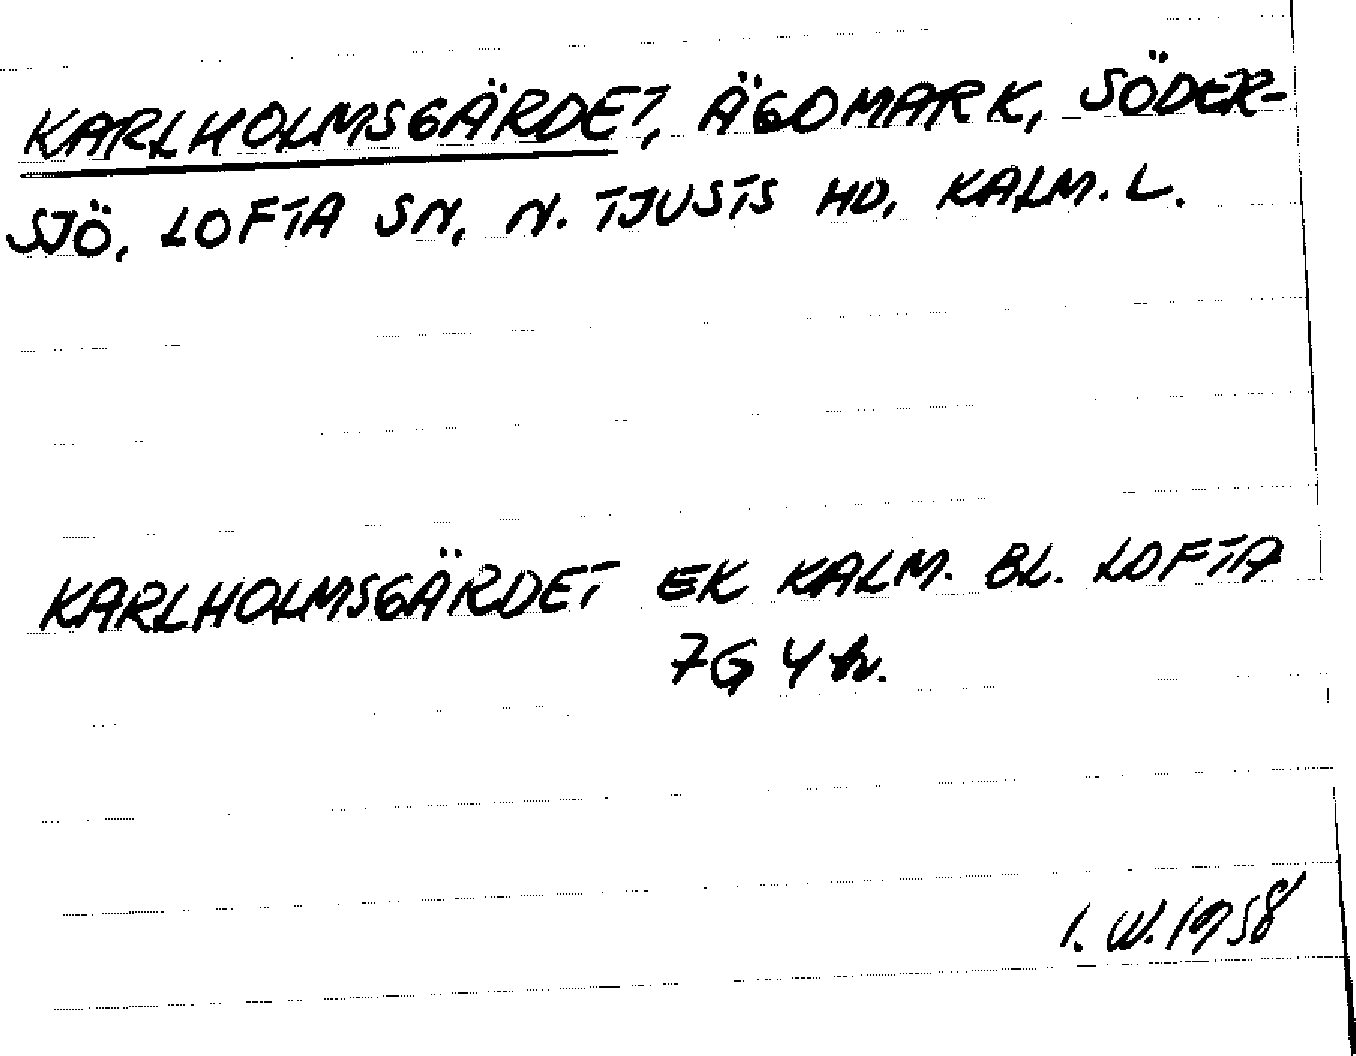 KARLHOLMSGÄRDET, ÄGOMARK, SÖDER-
SJÖ, LOFTA SN, N. TJUSTS HD, KALM. L.
KARLHOLMSGÄRDET EK KALM. BL. LOFTA
7G 4h.
I. W. 1958